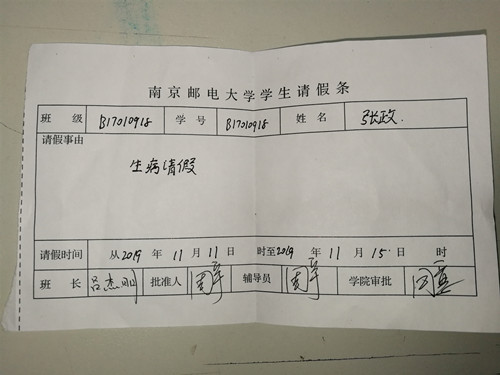 南京邮电大学学生请假条
班级 B17010918 学号 B17010918 姓名 张政
请假事由
生病请假
请假时间 从2019年11月11日 时至2019年11月15日 时
班长 吕杰刚 批准人 辅导员 学院审批